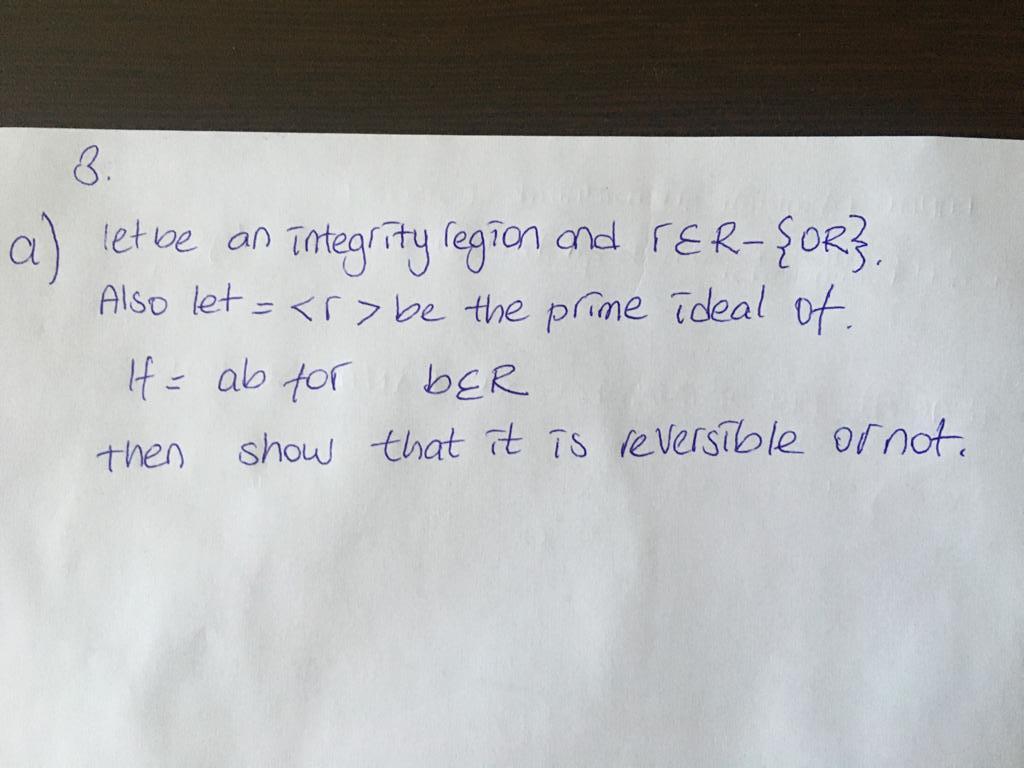 3.
a) let be an integrity region and r ε R - {OR}.
Also let = <r> be the prime ideal of.
If = ab for b ε R
then show that it is reversible or not.